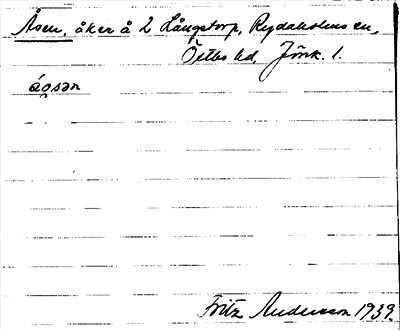 Åsen, åker å 2 Långstorp, Rydaholms sn,
Östbo hd, Jönk. l.
åo̯sən
Fritz Andersson 1939.